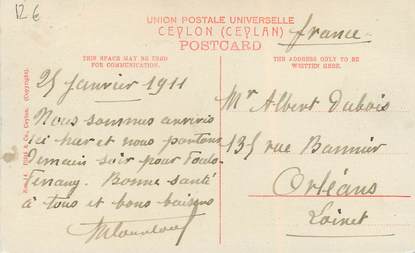 12 €
UNION POSTALE UNIVERSELLE
CEYLON (CEYLAN)
POSTCARD
france
THIS SPACE MAY BE USED
FOR COMMUNICATION.
THE ADDRESS ONLY TO BE
WRITTEN HERE.
25 Janvier 1911
Nous sommes arrivés
ici hier et nous partons
demain soir pour
Penang. Bonne santé
à tous et bons baisers
Mr Albert Dubois
135 rue Bannier
Orléans
Loiret
& Co., Ceylon. (Copyright).